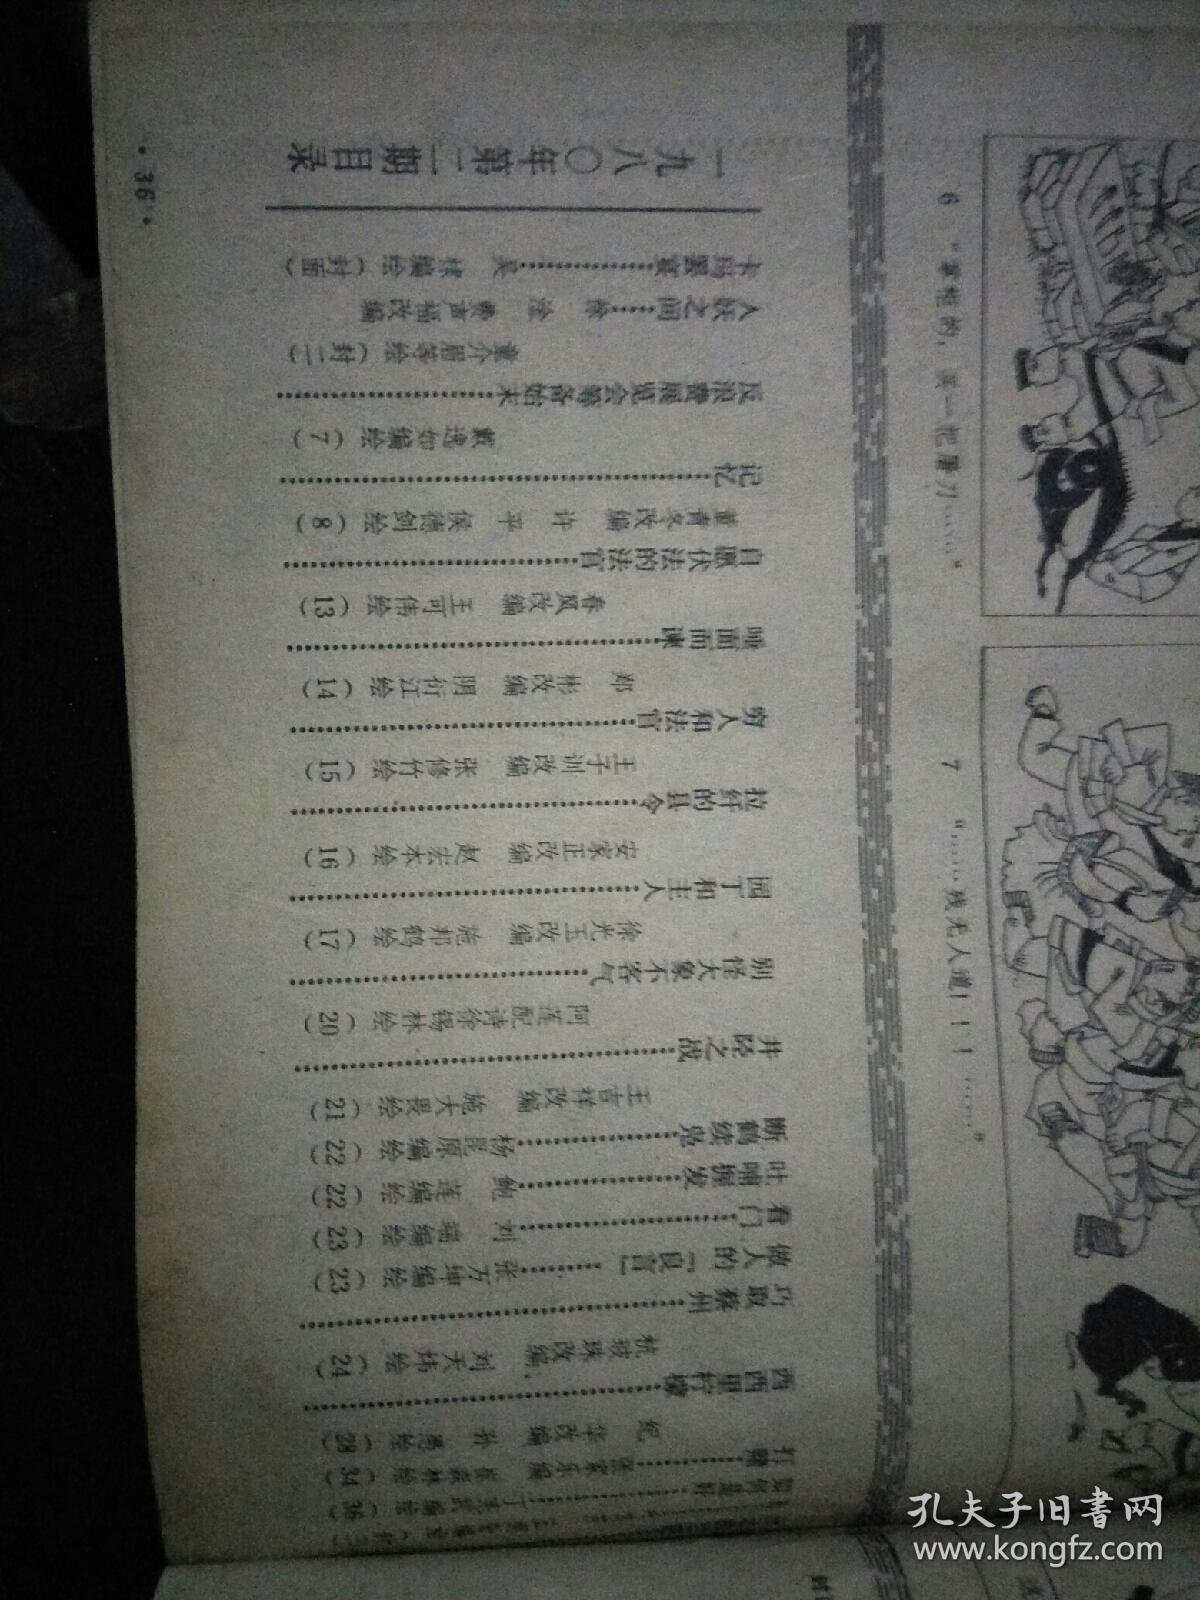 一九八〇年第二期目录
卡玛蜜蜜…………吴　棣编绘（封面）
人妖之间……徐　淦　费声福改编
童介眉等绘（封二）
反浪费展览会筹备始末……………………
戴逸如编绘（7）
记忆……………………
董青冬改编　许　平　侯德剑绘（8）
自愿伏法的法官……………………
春风改编　王可伟绘（13）
唾面而谏……………………
郑　彬改编　阴衍江绘（14）
穷人和法官……………………
王子训改编　张修竹绘（15）
拉纤的县令……………………
安家正改编　赵志本绘（16）
园丁和主人……………………
徐光玉改编　施邦鹤绘（17）
别怪大象不客气……………………
阿莲配诗徐锡林绘（20）
井陉之战……………………
王吉祥改编　施大畏绘（21）
断鹤续凫…………杨昆原编绘（22）
吐哺握发…………鲍　莲编绘（22）
看门…………刘　编绘（23）
做人的"良言"………张万坤编绘（23）
巧取蔡州……………………
改编　刘天炜绘（24）
西西里柠檬……………………
纪　华改编　孙　愚绘（28）
打赌…………张家乐编（34）
6 "　　的，　一把屠刀……"
7 "……残无人道！！！……"
·36·
孔夫子旧书网
www.kongfz.com